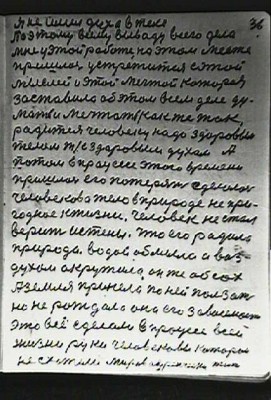 36
я не имел духа в теле
Поэтому всему выводу всего дела
мне у этой работе на этом месте
пришлось устретится с этой
мыслей и этой мечтой которая
заставила об этом всем деле ду-
мать и мечтать как же так,
радится человеку надо здоровым
телом т/с здоровым духом. А
потом в процессе этого времени
пришлось его потерять сделалось
человеково тело в природе не при-
годное к жизни. Человек не стал
верить истены. что его радила
природа. водой обмыла и воз-
духом окружила он же обсох
А земля приняла по ней ползать
но не рождала она его завис
Это всё сделали в процессе всей
жизни руки человековы которые
не схотели